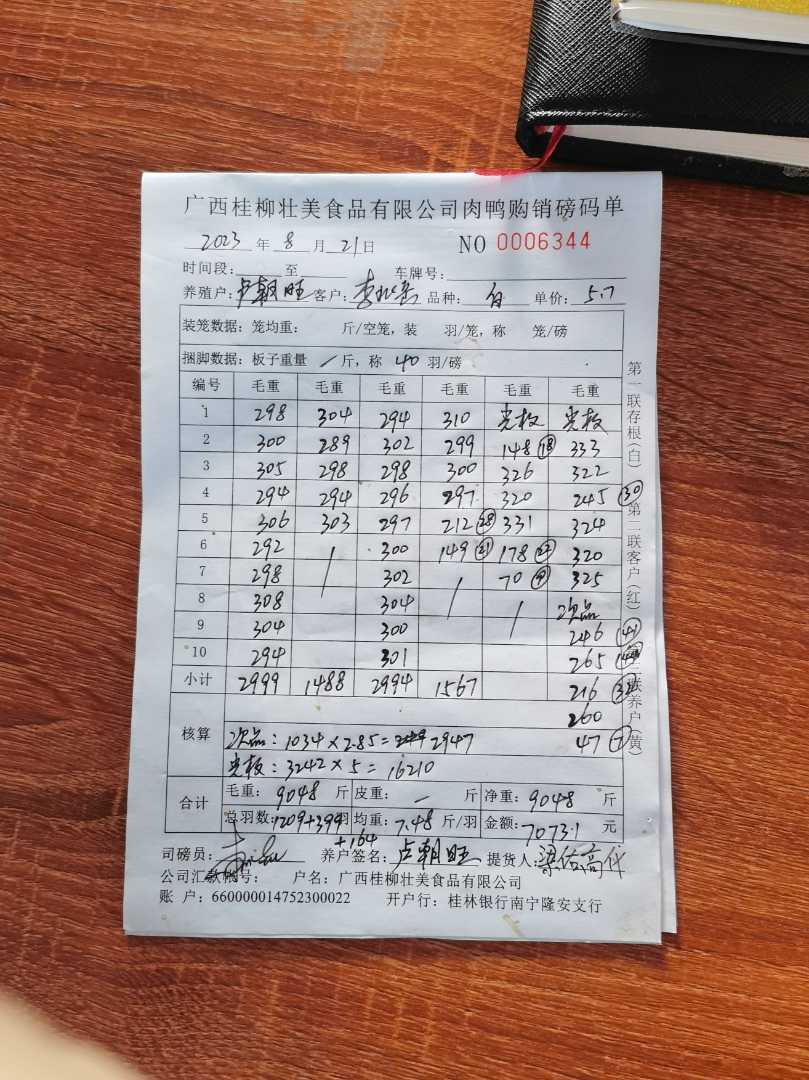 广西桂柳壮美食品有限公司肉鸭购销磅码单
2023 年 8 月 21 日 NO 0006344
时间段: 至 车牌号:
养殖户: 卢朝旺 客户: 李 品种: 白 单价: 5.7
装笼数据: 笼均重: 斤/空笼, 装 羽/笼, 称 笼/磅
捆脚数据: 板子重量 / 斤, 称 40 羽/磅
编号 毛重 毛重 毛重 毛重 毛重 毛重
1 298 304 294 310 光板 光板
2 300 289 302 299 148 (18) 333
3 305 298 298 300 326 322
4 294 294 296 297 320 245 (30)
5 306 303 297 212 (28) 331 324
6 292 / 300 149 (21) 178 320
7 298 302 / 70 (9) 325
8 308 304 / 次品
9 304 300 246 (41)
10 294 301 265
小计 2999 1488 2994 1567 216
260
核算 次品: 1034 × 2.85 = 2947 47 (7)
光板: 3242 × 5 = 16210
合计 毛重: 9048 斤 皮重: — 斤 净重: 9048 斤
总羽数: 1209+399 羽 均重: 7.48 斤/羽 金额: 70731 元
+164
司磅员: 养户签名: 卢朝旺 提货人: 梁佑高代
公司汇款帐号: 户名: 广西桂柳壮美食品有限公司
账 户: 660000014752300022 开户行: 桂林银行南宁隆安支行
第一联存根(白) 第二联客户(红) 第三联养户(黄)